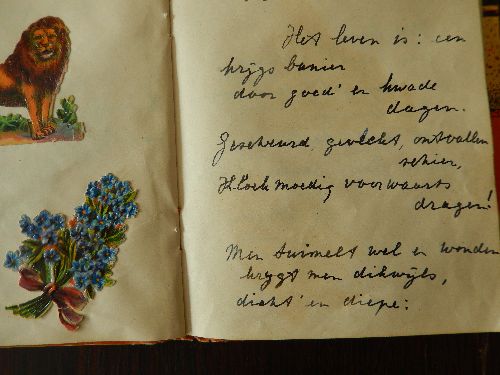 Het leven is: een
krijgs banier
door goed' en kwade
dagen.
Gescheurd, gevlekt, ontvallen
schier,
Kloekmoedig voorwaarts
dragen!
Men tuimelt wel en wonden
krygt men dikwyls,
dicht en diepe: